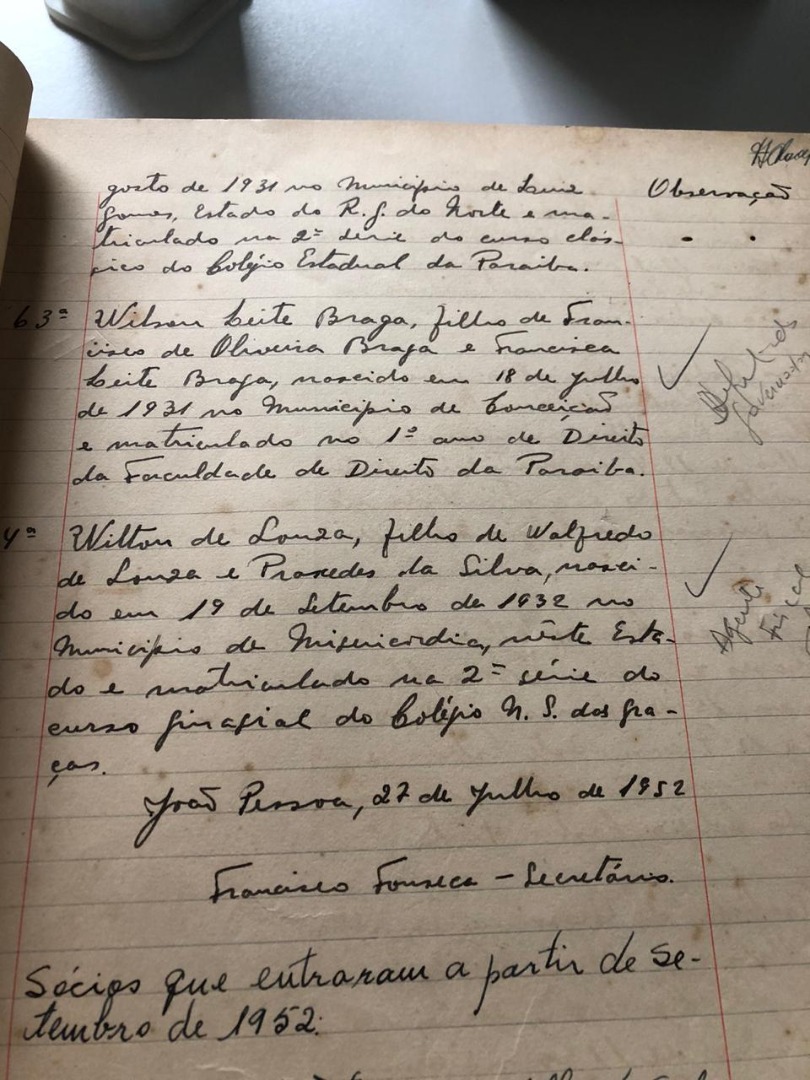 Observação
gosto de 1931 no Município de Luiz
Gomes, Estado do R. G. do Norte e ma-
triculado na 2ª série do curso clás-
sico do Colégio Estadual da Paraiba.
63ª Wilson Leite Braga, filho de Fran-
cisco de Oliveira Braga e Francisca
Leite Braga, nascido em 18 de Julho
de 1931 no Município de Conceição
e matriculado no 1º ano de Direito
da Faculdade de Direito da Paraiba.
Deputado
Governador
4ª Wilton de Souza, filho de Walfredo
de Souza e Praxedes da Silva, nasci-
do em 19 de Setembro de 1932 no
Município de Misericordia, nêste Esta-
do e matriculado na 2ª série do
curso ginasial do Colégio N. S. das Gra-
ças.
Agente
Fiscal
João Pessoa, 27 de Julho de 1952
Francisco Fonseca - Secretário.
Sócios que entraram a partir de Se-
tembro de 1952: